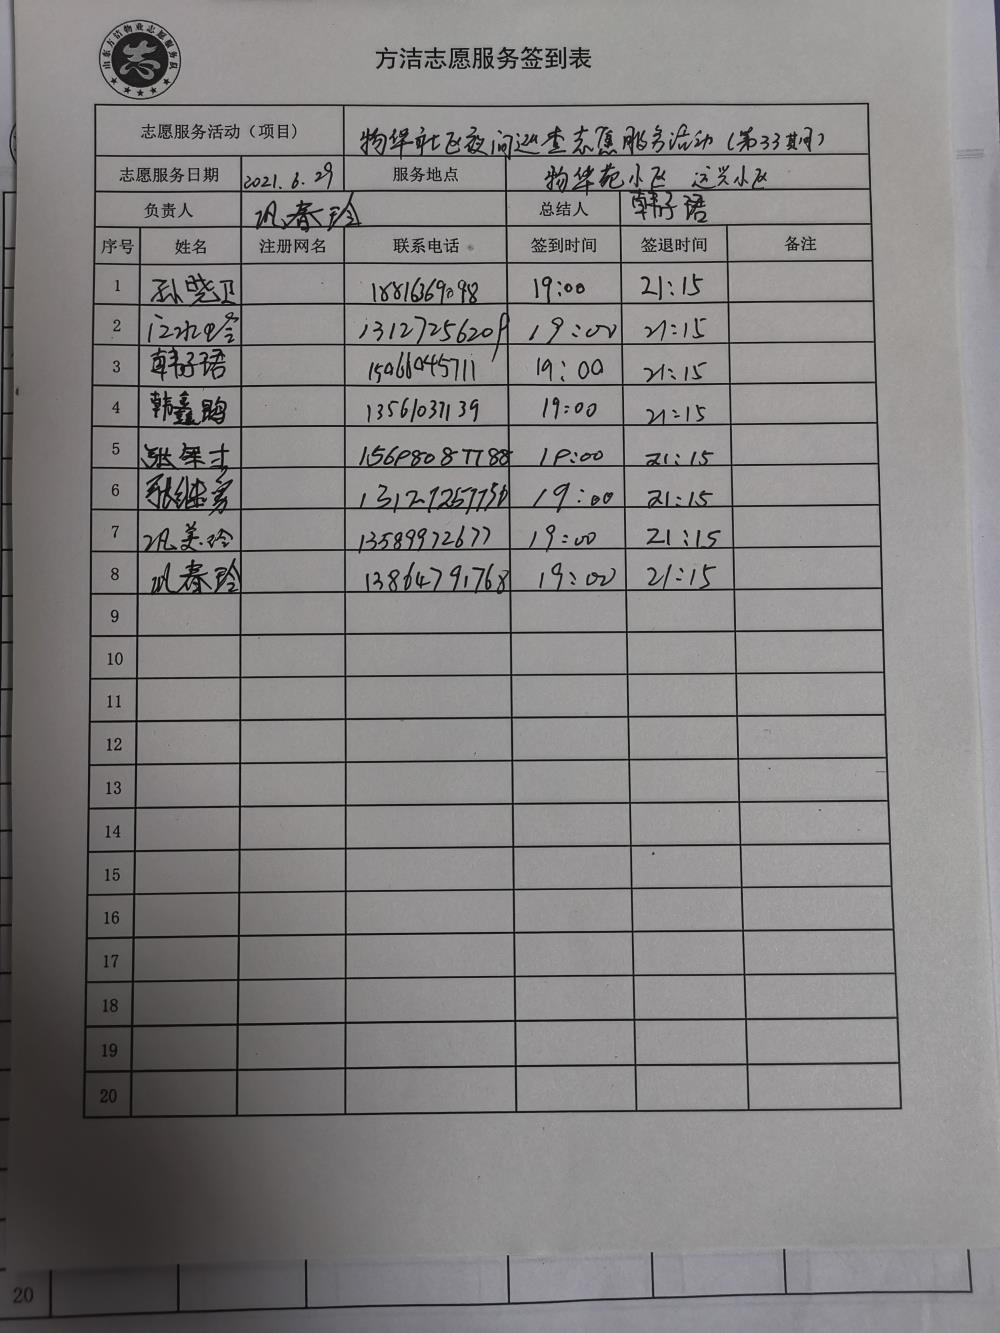 山东方洁物业志愿服务队
方洁志愿服务签到表
志愿服务活动（项目） 物华社区夜间巡查志愿服务活动（第33期）
志愿服务日期 2021.6.29 服务地点 物华苑小区 远兴小区
负责人 巩春玲 总结人 韩子语
序号 姓名 注册网名 联系电话 签到时间 签退时间 备注
1 孙晓卫 19:00 21:15
2 19:00 21:15
3 韩子语 19:00 21:15
4 韩鑫鹏 13561037139 19:00 21:15
5 19:00 21:15
6 张继勇 19:00 21:15
7 巩美玲 13589972677 19:00 21:15
8 巩春玲 13864791768 19:00 21:15
9
10
11
12
13
14
15
16
17
18
19
20
20